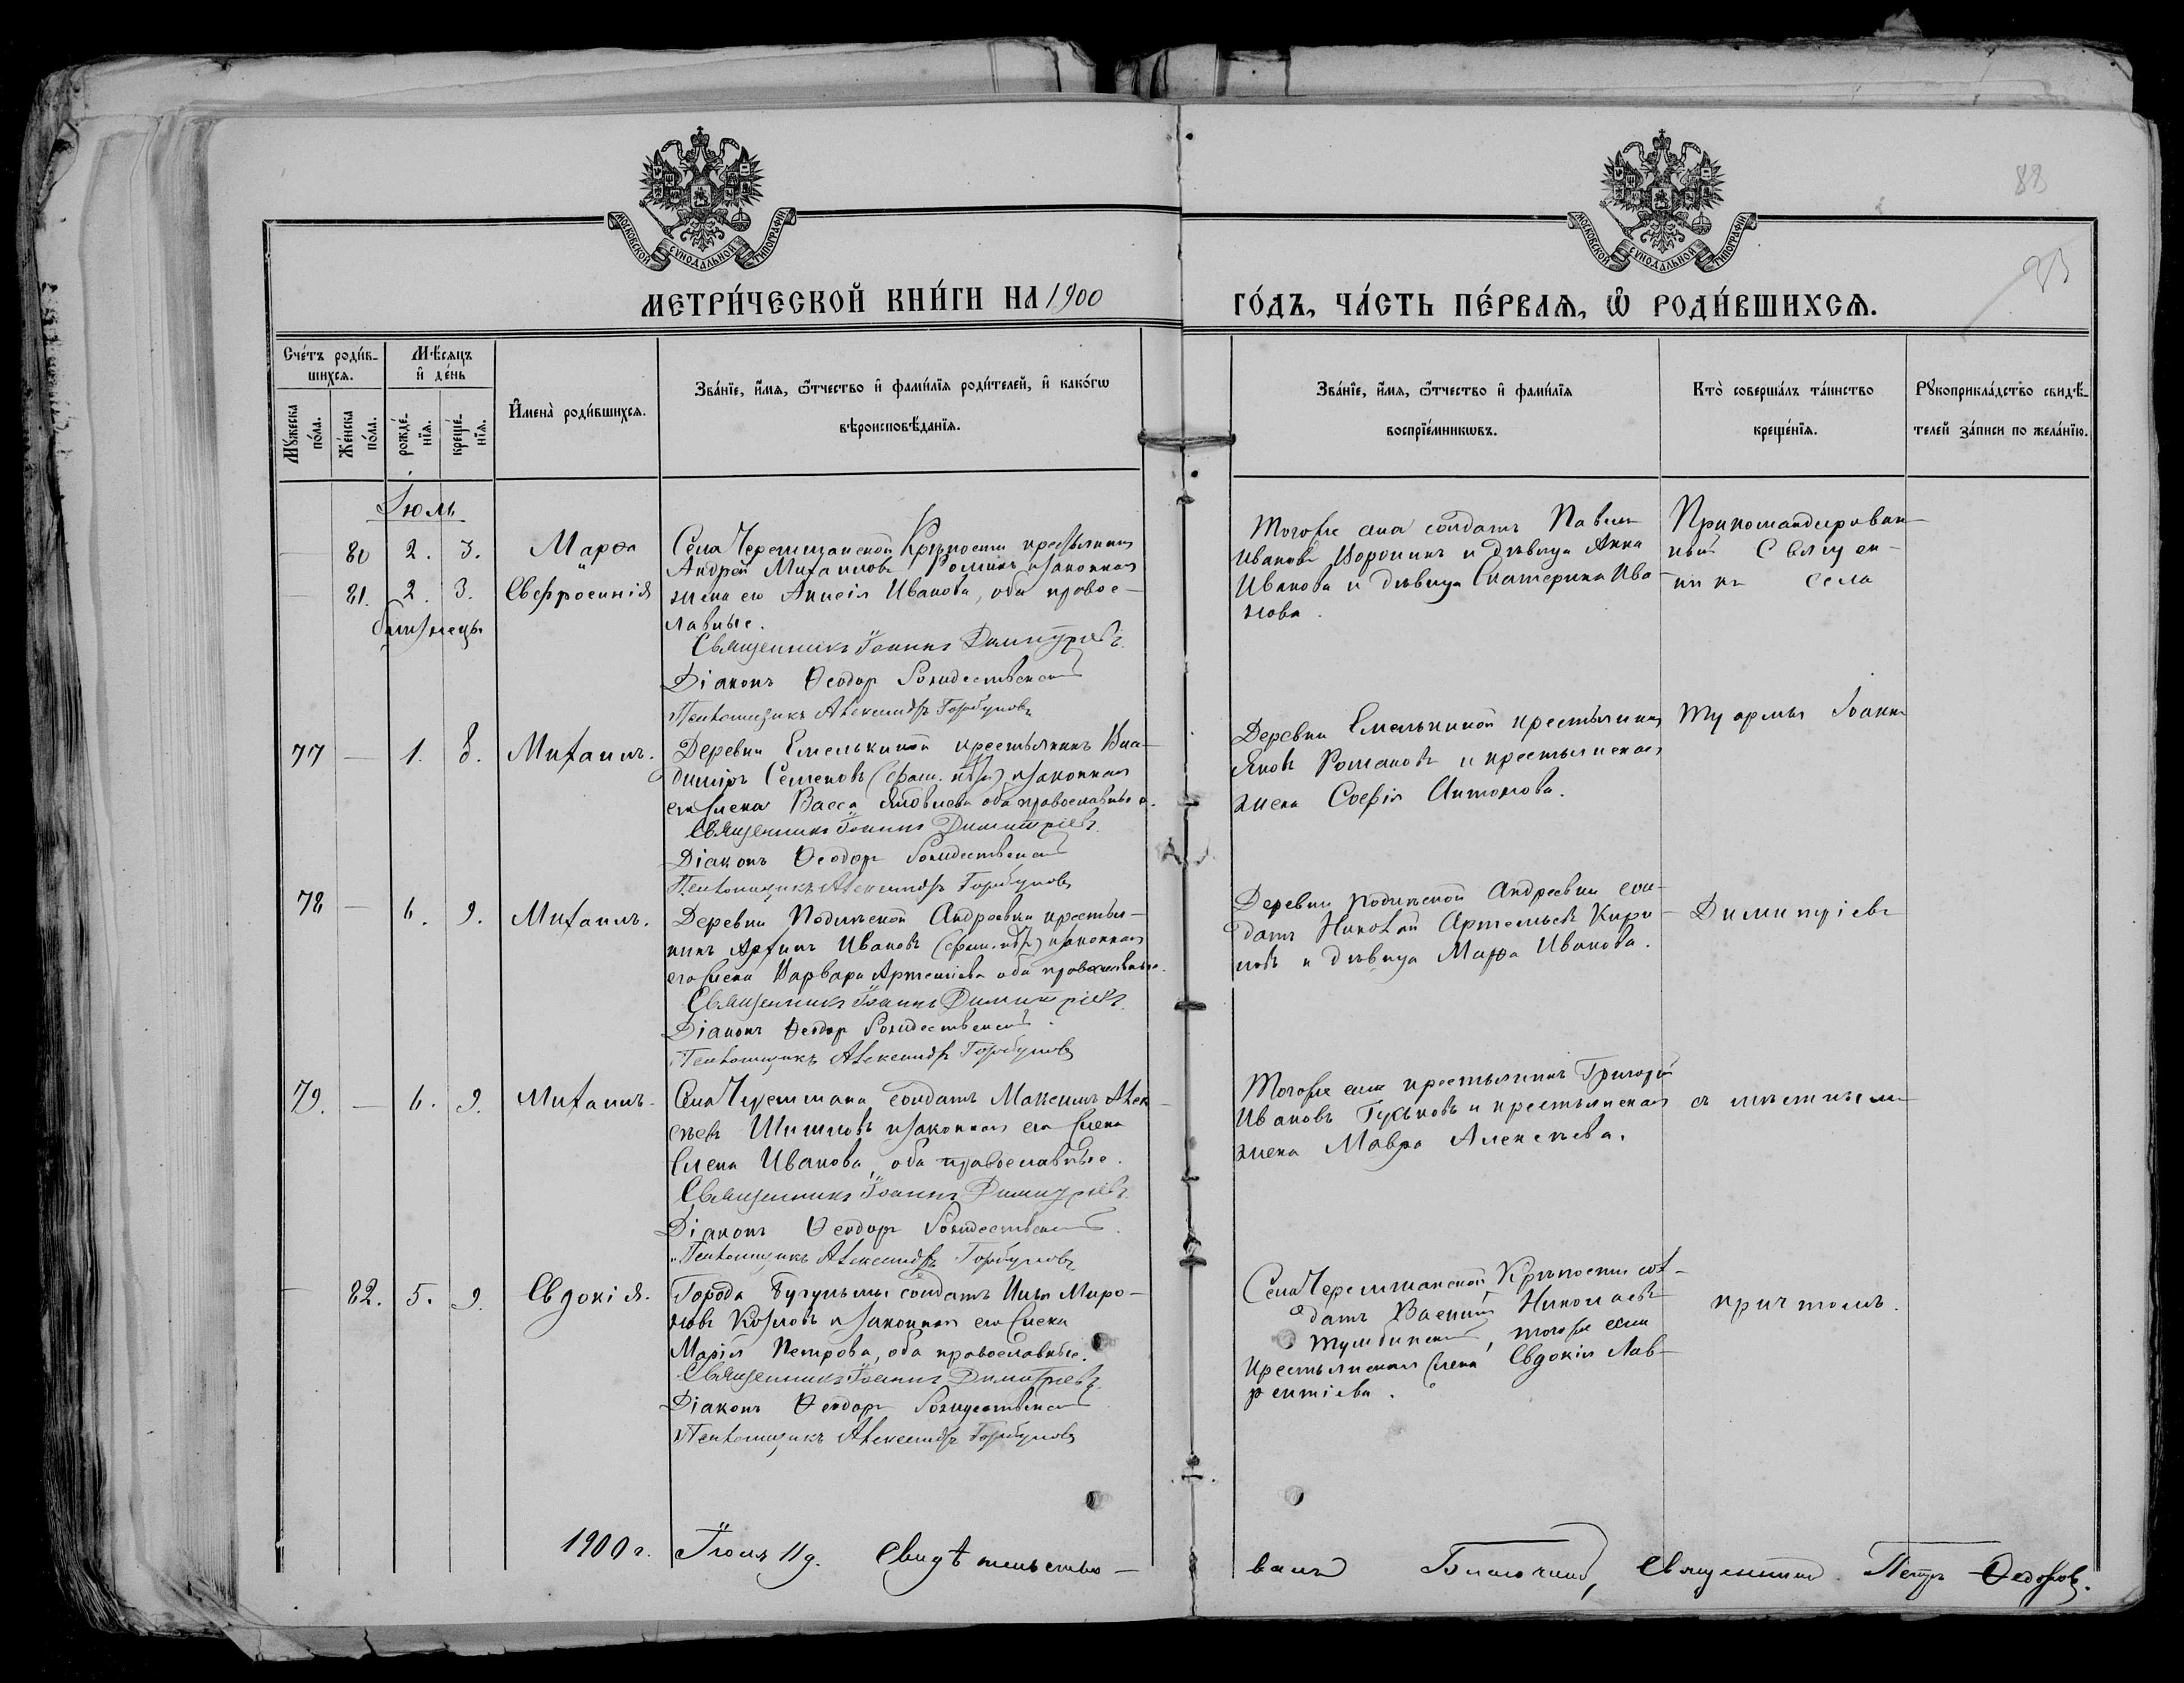 83
МОСКОВСКОЙ СѴНОДАЛЬНОЙ ТИПОГРАФІИ
МОСКОВСКОЙ СѴНОДАЛЬНОЙ ТИПОГРАФІИ
МЕТРИ́ЧЕСКОЙ КНИ́ГИ НА 1900
ГО́ДЪ, ЧА́СТЬ ПЕ́РВАѦ, Ѽ РОДИ́ВШИХСѦ.
Сче́тъ роди́в-
шихсѧ.
Мꙋ́жеска
по́ла.
Же́нска
по́ла.
Мѣ́сѧцъ
и҆ де́нь
рожде́-
нїѧ.
креще́-
нїѧ.
И҆мена̀ роди́вшихсѧ.
Зва́нїе, и҆́мѧ, ѻ҆́тчество и҆ фами́лїѧ роди́телей, и҆ како́гѡ
вѣроисповѣ́данїѧ.
Зва́нїе, и҆́мѧ, ѻ҆́тчество и҆ фами́лїѧ
воспрїе́мникѡвъ.
Кто̀ соверша́лъ та́инство
креще́нїѧ.
Рꙋкоприкла́дство свидѣ́-
телей за́писи по жела́нїю.
Іюль
80 2. 3. Марѳа
Села Черемшанской Крѣпости крестьянинъ
Андрей Михаиловъ Роминъ и законная
81. 2. 3. Евфросинія
жена его Анисія Иванова, оба правос-
близнецы
лавные.
Священникъ Іоаннъ Димитріевъ.
Діаконъ Ѳеодоръ Рождественскій
Псаломщикъ Александръ Горбуновъ
Тогоже села солдатъ Павелъ
Ивановъ Воронинъ и дѣвица Анна
Иванова и дѣвица Екатерина Ива-
нова.
Прикомандирован-
ный Священ-
никъ села
77 — 1. 8. Михаилъ.
Деревни Емелькиной крестьянинъ Вла-
диміръ Семеновъ и законная
его жена Васса Яковлева оба православные.
Священникъ Іоаннъ Димитріевъ.
Діаконъ Ѳеодоръ Рождественскій
Псаломщикъ Александръ Горбуновъ
Деревни Емелькиной крестьянинъ
Яковъ Романовъ и крестьянская
жена Софія Антонова.
Туармы Іоаннъ
78 — 6. 9. Михаилъ.
Деревни Подлѣсной Андреевки крестья-
нинъ Архипъ Ивановъ и законная
его жена Варвара Артеміева оба православные.
Священникъ Іоаннъ Димитріевъ.
Діаконъ Ѳеодоръ Рождественскій.
Псаломщикъ Александръ Горбуновъ
Деревни Подлѣсной Андреевки сол-
датъ Николай Артемьевъ Кири-
ловъ и дѣвица Марѳа Иванова.
Димитріевъ
79. — 6. 9. Михаилъ.
Села Черемшана солдатъ Максимъ Алек-
сѣевъ Шишловъ и законная его жена
Елена Иванова, оба православные.
Священникъ Іоаннъ Димитріевъ.
Діаконъ Ѳеодоръ Рождественскій.
Псаломщикъ Александръ Горбуновъ
Тогоже села крестьянинъ Григорій
Ивановъ Гуськовъ и крестьянская
жена Мавра Алексѣева.
съ мѣстнымъ
— 82. 5. 9. Евдокія.
Города Бугульмы солдатъ Илья Миро-
новъ Козловъ и законная его жена
Марія Петрова, оба православные.
Священникъ Іоаннъ Димитріевъ.
Діаконъ Ѳеодоръ Рождественскій
Псаломщикъ Александръ Горбуновъ
Села Черемшанской Крѣпости сол-
датъ Василій Николаевъ
тогоже села
крестьянская жена Евдокія Лав-
рентіева.
причтомъ.
1900 г. Іюля 11 д. Свидѣтельство-
валъ Благочинный, Священникъ Петръ Ѳедоровъ.